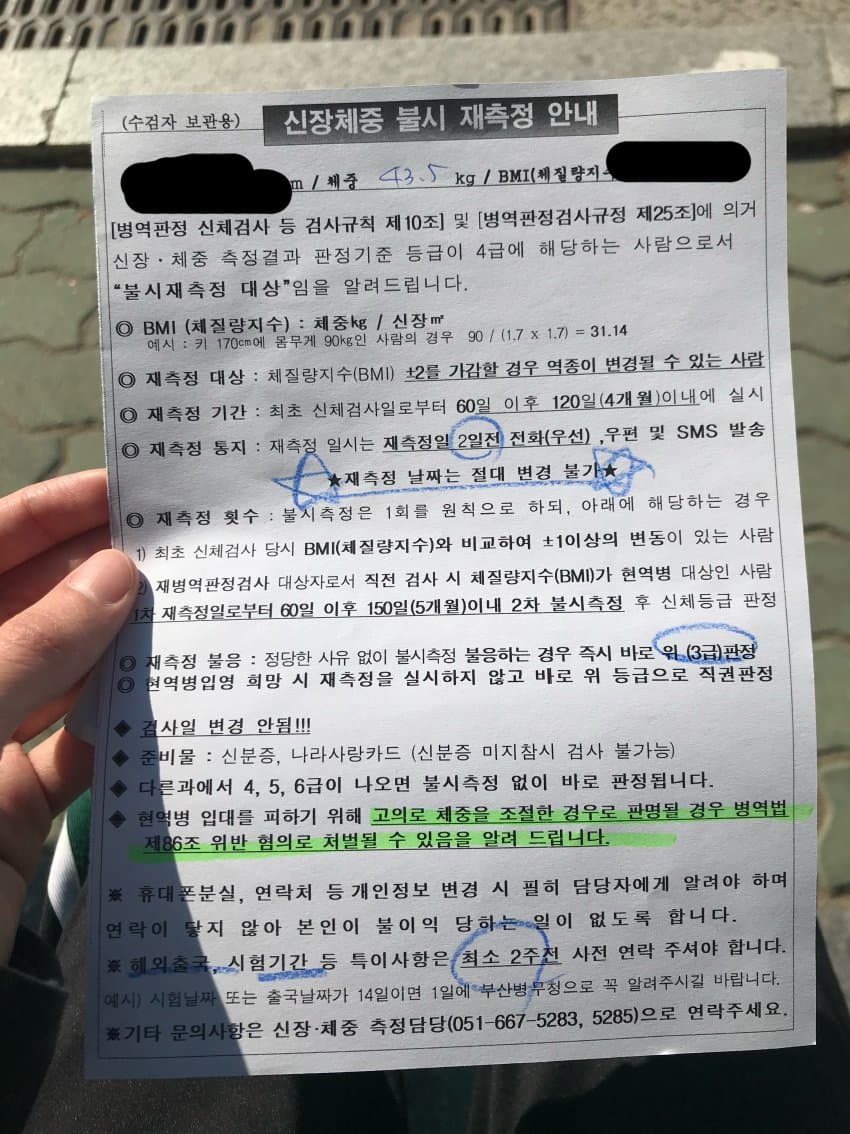 (수검자 보관용) 신장체중 불시 재측정 안내
m / 체중 43.5 kg / BMI(체질량지수
[병역판정 신체검사 등 검사규칙 제10조] 및 [병역판정검사규정 제25조]에 의거
신장·체중 측정결과 판정기준 등급이 4급에 해당하는 사람으로서
“불시재측정 대상”임을 알려드립니다.
◎ BMI (체질량지수) : 체중kg / 신장㎡
예시 : 키 170㎝에 몸무게 90kg인 사람의 경우 90 / (1.7 x 1.7) = 31.14
◎ 재측정 대상 : 체질량지수(BMI) ±2를 가감할 경우 역종이 변경될 수 있는 사람
◎ 재측정 기간 : 최초 신체검사일로부터 60일 이후 120일(4개월)이내에 실시
◎ 재측정 통지 : 재측정 일시는 재측정일 2일전 전화(우선) ,우편 및 SMS 발송
★재측정 날짜는 절대 변경 불가★
◎ 재측정 횟수 : 불시측정은 1회를 원칙으로 하되, 아래에 해당하는 경우
1) 최초 신체검사 당시 BMI(체질량지수)와 비교하여 ±1이상의 변동이 있는 사람
2) 재병역판정검사 대상자로서 직전 검사 시 체질량지수(BMI)가 현역병 대상인 사람
1차 재측정일로부터 60일 이후 150일(5개월)이내 2차 불시측정 후 신체등급 판정
◎ 재측정 불응 : 정당한 사유 없이 불시측정 불응하는 경우 즉시 바로 위 (3급)판정
◎ 현역병입영 희망 시 재측정을 실시하지 않고 바로 위 등급으로 직권판정
◆ 검사일 변경 안됨!!!
◆ 준비물 : 신분증, 나라사랑카드 (신분증 미지참시 검사 불가능)
◆ 다른과에서 4, 5, 6급이 나오면 불시측정 없이 바로 판정됩니다.
◆ 현역병 입대를 피하기 위해 고의로 체중을 조절한 경우로 판명될 경우 병역법
제86조 위반 혐의로 처벌될 수 있음을 알려 드립니다.
※ 휴대폰분실, 연락처 등 개인정보 변경 시 필히 담당자에게 알려야 하며
연락이 닿지 않아 본인이 불이익 당하는 일이 없도록 합니다.
※ 해외출국, 시험기간 등 특이사항은 최소 2주전 사전 연락 주셔야 합니다.
예시) 시험날짜 또는 출국날짜가 14일이면 1일에 부산병무청으로 꼭 알려주시길 바랍니다.
※기타 문의사항은 신장·체중 측정담당(051-667-5283, 5285)으로 연락주세요.